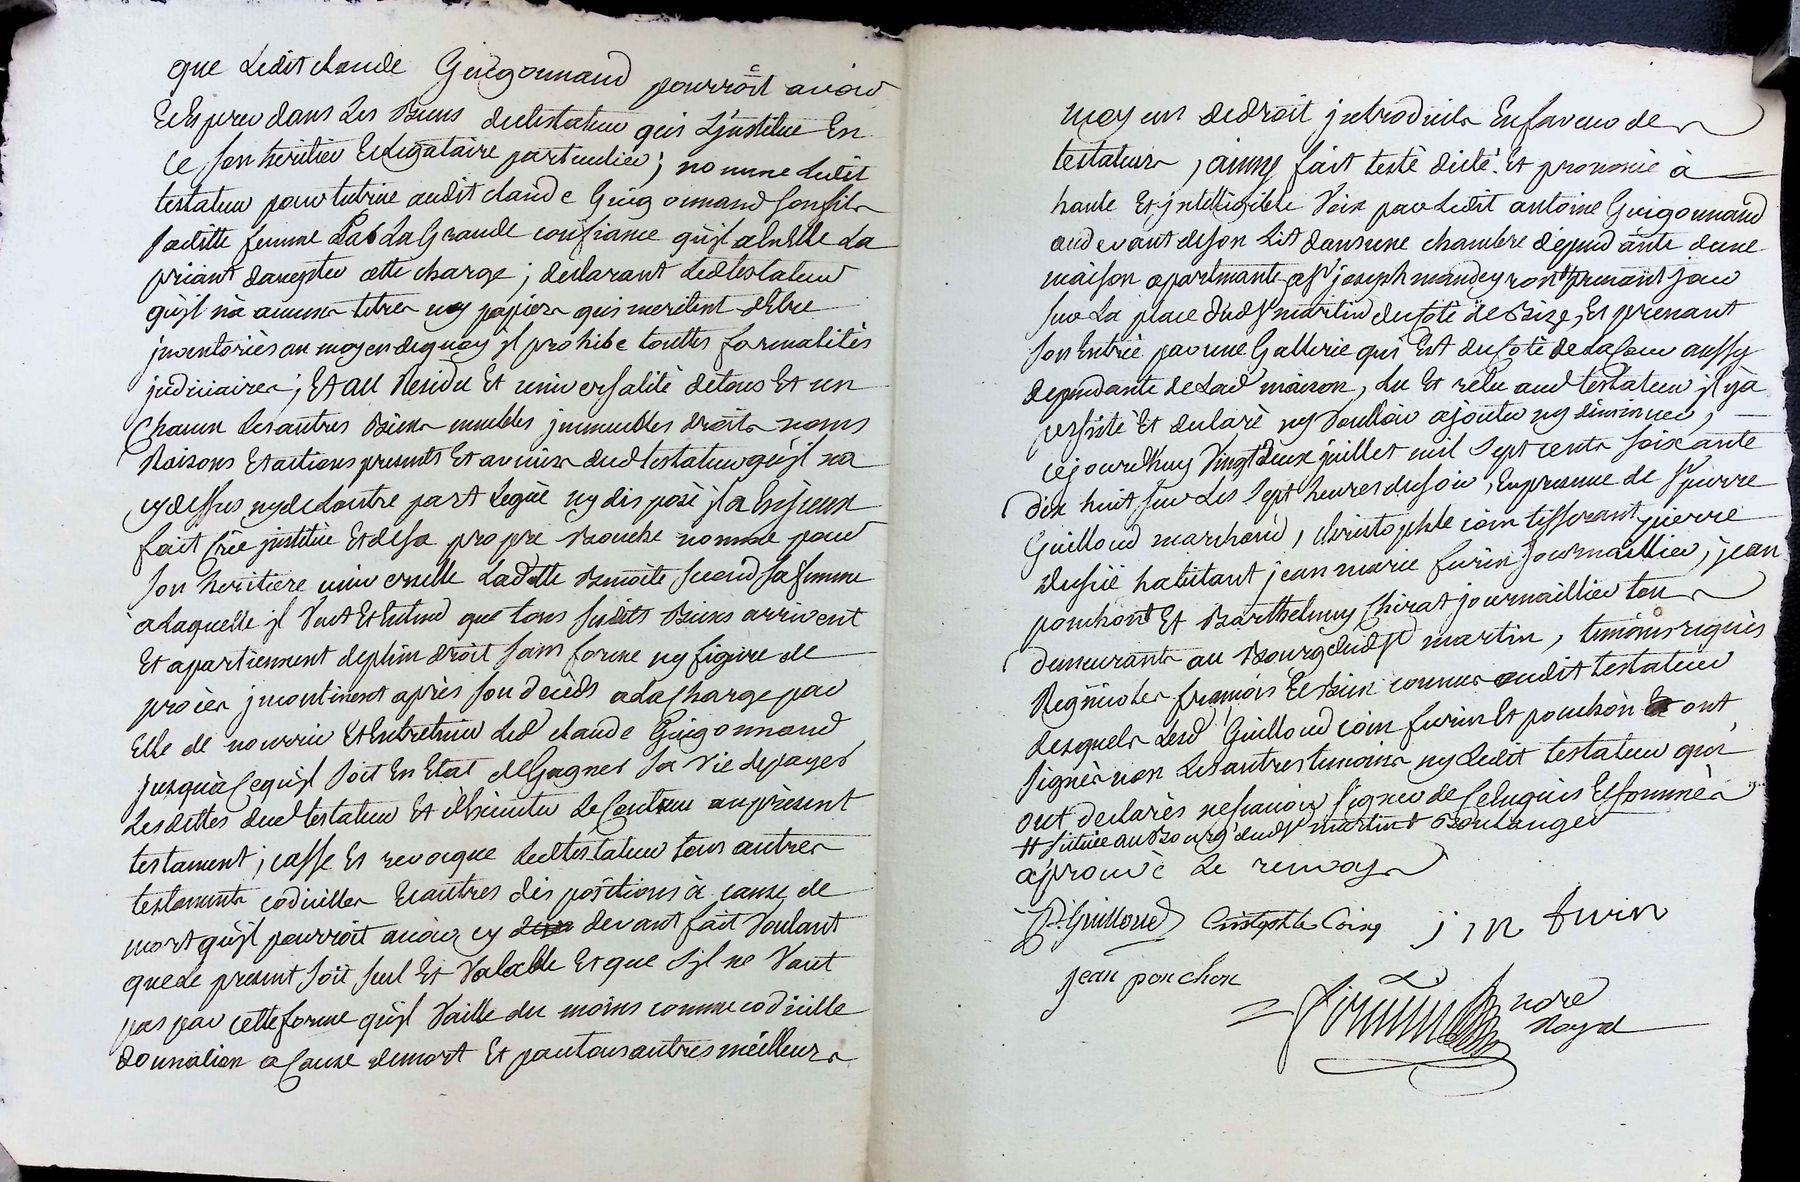 que Ledit claude Guigonnand pourroit avoir
Et Espérer dans Les Biens dudit testateur qui L'jnstitue En
Ce son heritier Et Legataire particulier ; nomme Ledit
testateur pour tutrice audit claude Guigonnand son fils
Laditte femme La Grande confiance qu'jl a En Elle La
priant d'accepter cette charge ; declarant Led testateur
qu'jl n'a aucuns titres ny papiers qui meritent d'Etre
jnventoriés au moyen dequoy jl prohibe touttes formalités
judiciaires ; Et au Residu Et universalité de tous Et un
Chacun Les autres Biens meubles jmmeubles droits noms
Raisons Et actions presents Et avenirs dud testateur qu'jl n'a
cy dessus ny de d'autre part Legué ny disposé jl a
fait Crée jnstitué Et de sa propre Bouche nommé pour
son heritiere universelle Laditte Benoite sa femme
a Laquelle jl Veut Et Entend que tous susdits Biens arrivent
Et apartiennent de plein droit sans forme ny figure de
procès jncontinent après son decèds a La Charge par
Elle de nourrir Et Entretenir Led claude Guigonnand
jusqu'à Ce qu'jl soit En Etat de Gagner sa vie de payer
Les dettes dud testateur Et d'Executer Le Contenu au présent
testament ; casse Et revoque Led testateur tous autres
testaments codicilles Et autres dispositions à cause de
mort qu'jl pourroit avoir cy devant fait Voulant
que Le present soit seul Et Valable Et que s'jl ne Vaut
pas par cette forme qu'jl Vaille du moins comme codicille
donnation a Cause de mort Et par tous autres meilleurs
moyens de droit jntroduits En faveur de
testateurs, ainsy fait testé dicté Et prononcé à
haute Et jntelligible Voix par Ledit antoine Guigonnand
au devant de son Lit dans une chambre dependante d'une
maison apartenante a sr joseph prenant jour
sur La place dud st martin du coté de Bize, Et prenant
son Entrée par une Gallerie qui Est du coté de La Cour aussy
dependante de Lad maison, Lu Et relu aud testateur jl y a
persisté Et declaré ny Vouloir ajouter ny diminuer,
ce jourd'huy Vingt deux juillet mil sept cents soixante
dix huit sur Les sept heures du soir, En presence de sr pierre
Guilloud marchand, christophle coin tisserant pierre
habitant jean marie furin journaillier, jean
ponchon Et Barthelemy Chirat journaillier tous
demeurants au Bourg dudt st martin, temoins requis
Regnicoles françois Et Bien connus audit testateur
Lesquels Lesd Guilloud coin furin Et ponchon ont
signés non Les autres temoins ny Ledit testateur qui
ont declarés ne savoir signer de Ce Enquis Et sommés
# située au Bourg dud st martin Boulanger
aprouvé Le renvoy
P. Guilloud Christophle Coing j m furin
jean ponchon
nore
Royal